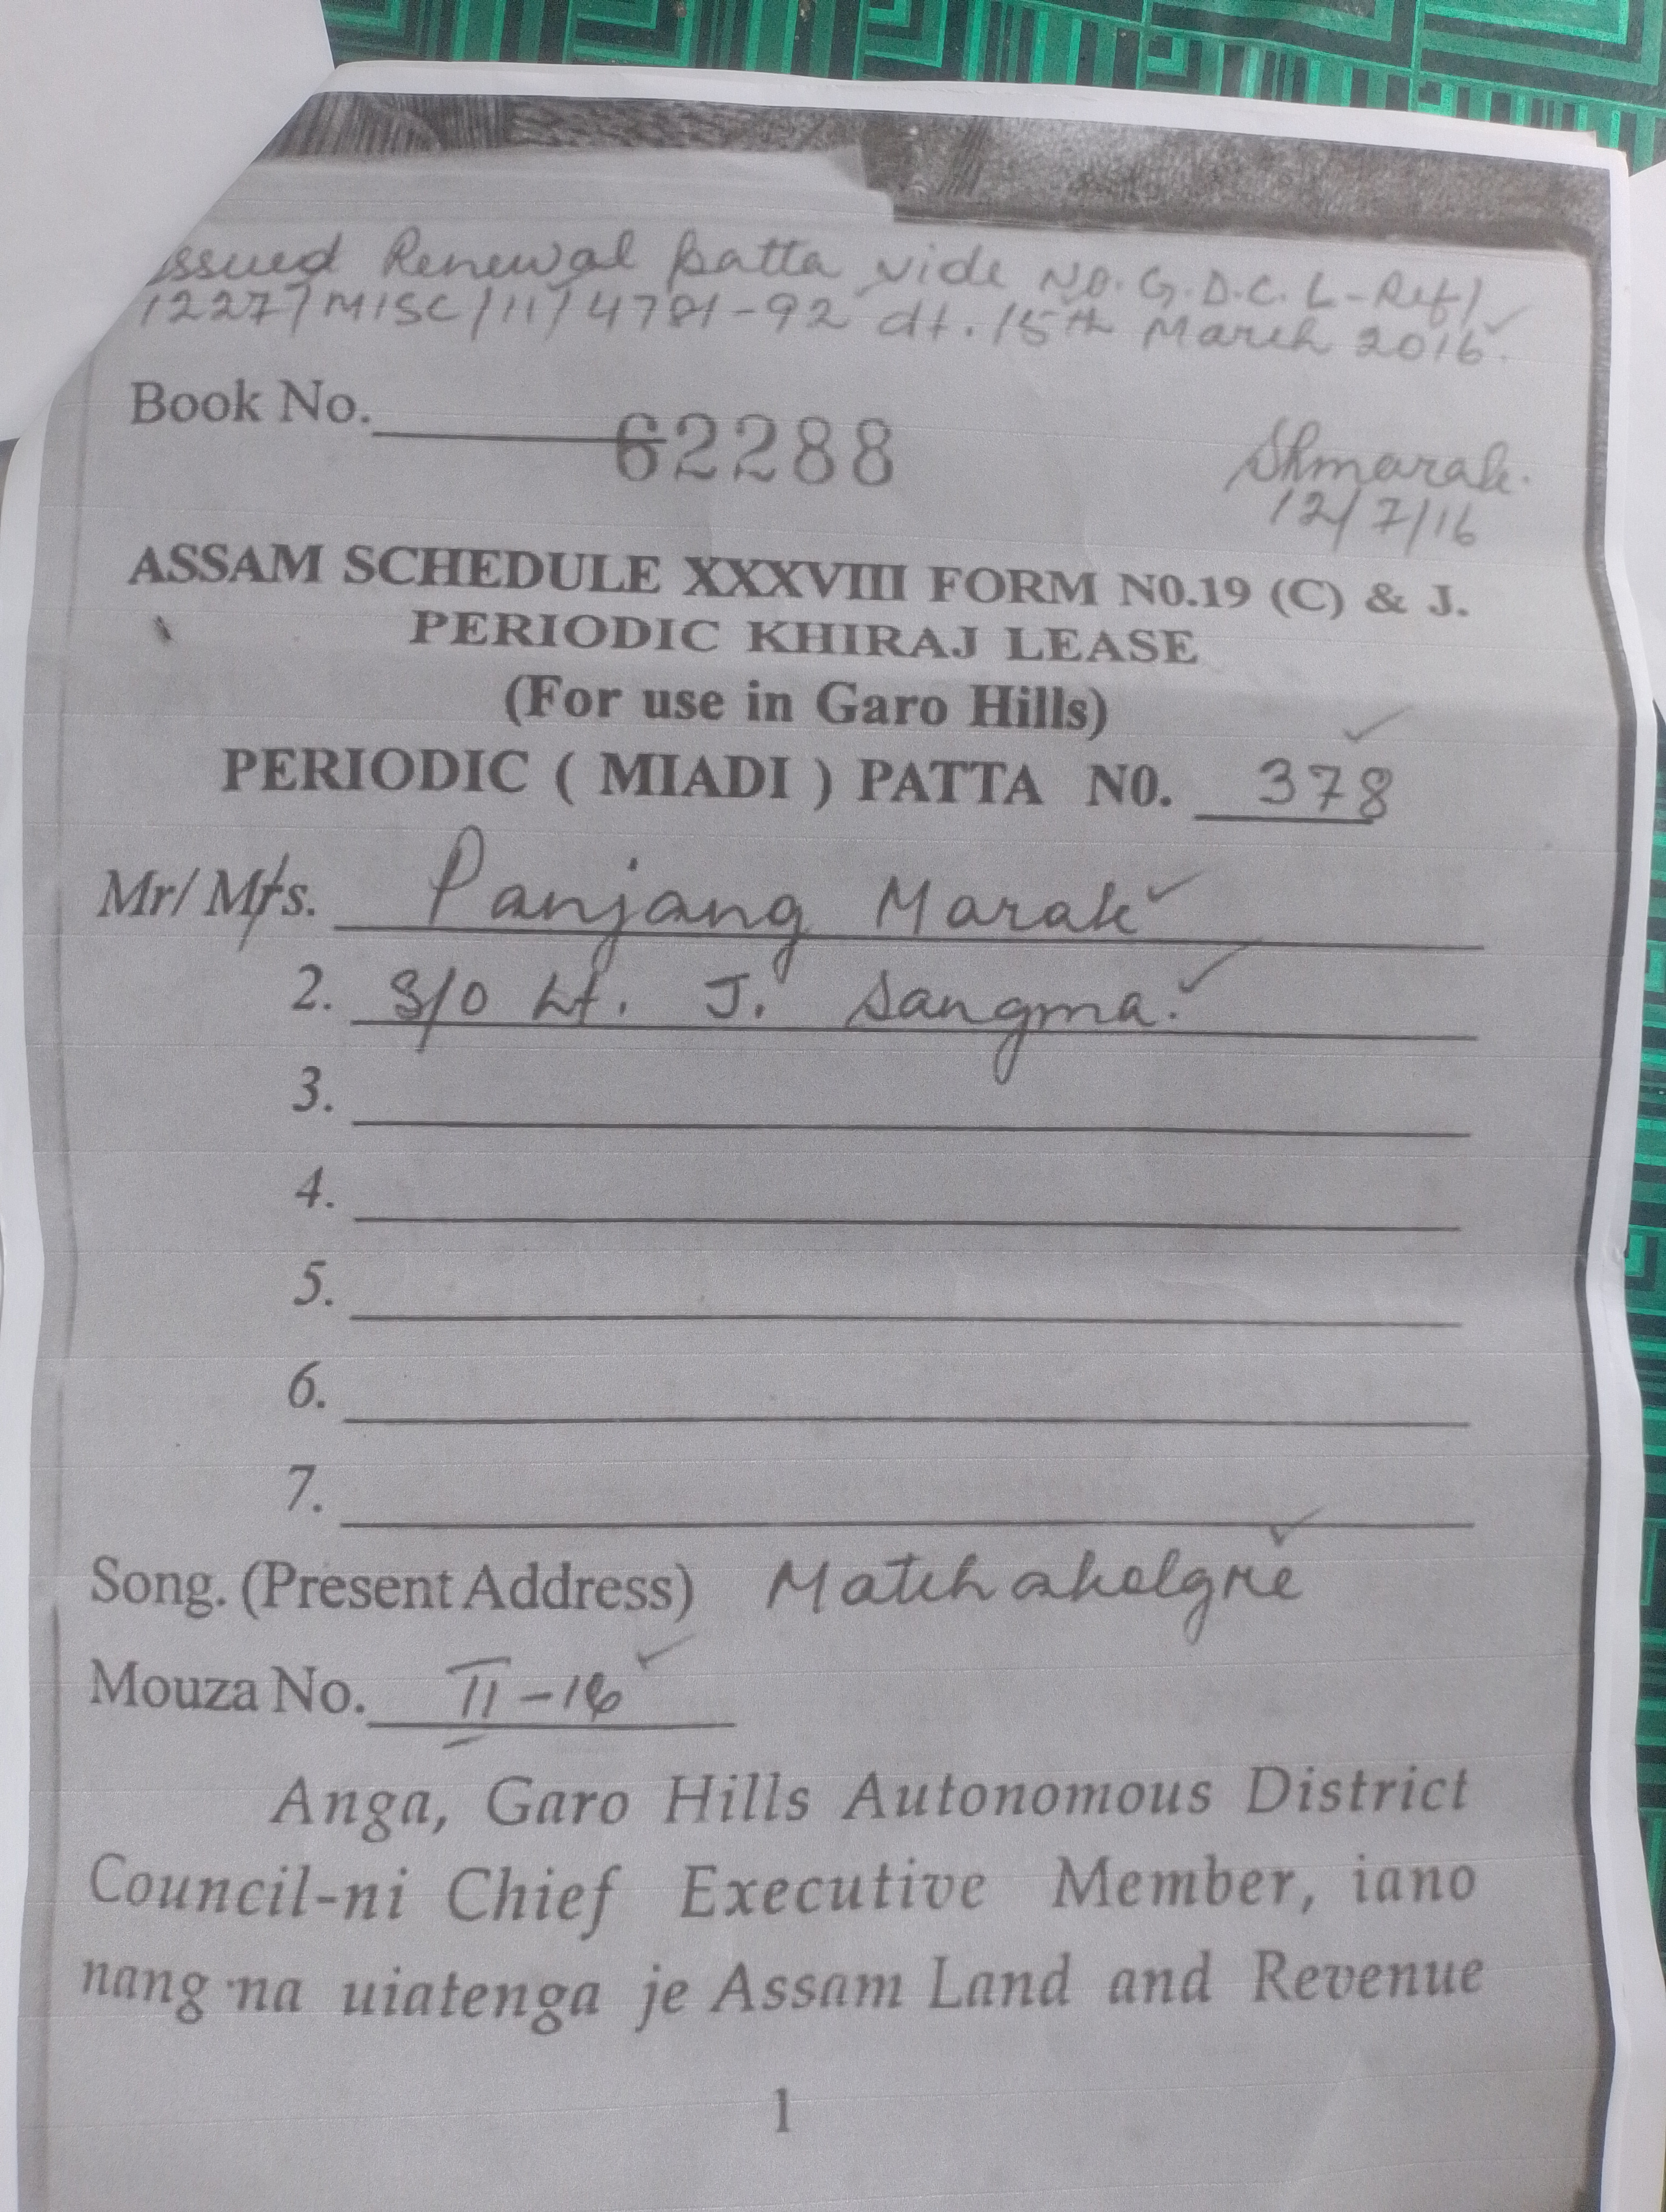 Issued Renewal patta vide No. G.D.C. L-Ref/
1227/MISC/11/4781-92 dt. 15th March 2016.
Book No. 62288
Skmarak.
12/7/16
ASSAM SCHEDULE XXXVIII FORM N0.19 (C) & J.
PERIODIC KHIRAJ LEASE
(For use in Garo Hills)
PERIODIC ( MIADI ) PATTA N0. 378
Mr/ Mrs. Panjang Marak
2. S/O Lt. J. Sangma.
3.
4.
5.
6.
7.
Song. (Present Address) Matchakolgre
Mouza No. II-16
Anga, Garo Hills Autonomous District
Council-ni Chief Executive Member, iano
nang·na uiatenga je Assam Land and Revenue
1